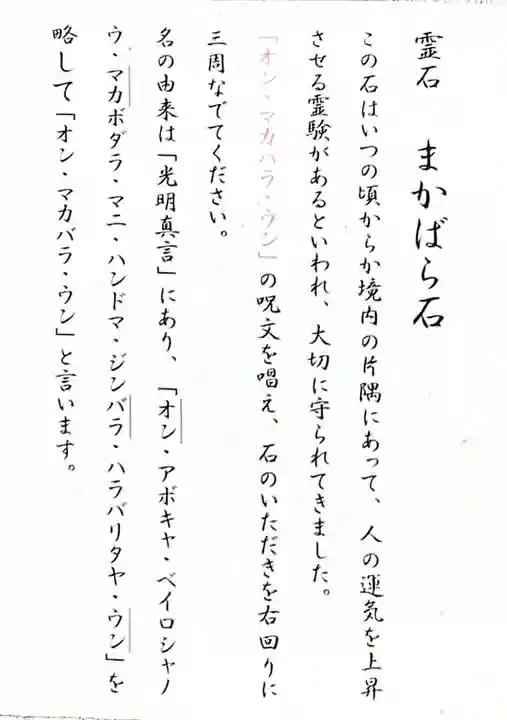 霊石　まかばら石
この石はいつの頃からか境内の片隅にあって、人の運気を上昇
させる霊験があるといわれ、大切に守られてきました。
「オン・マカハラ・ウン」の呪文を唱え、石のいただきを右回りに
三周なでてください。
名の由来は「光明真言」にあり、「オン・アボキャ・ベイロシャノ
ウ・マカボダラ・マニ・ハンドマ・ジンバラ・ハラバリタヤ・ウン」を
略して「オン・マカバラ・ウン」と言います。